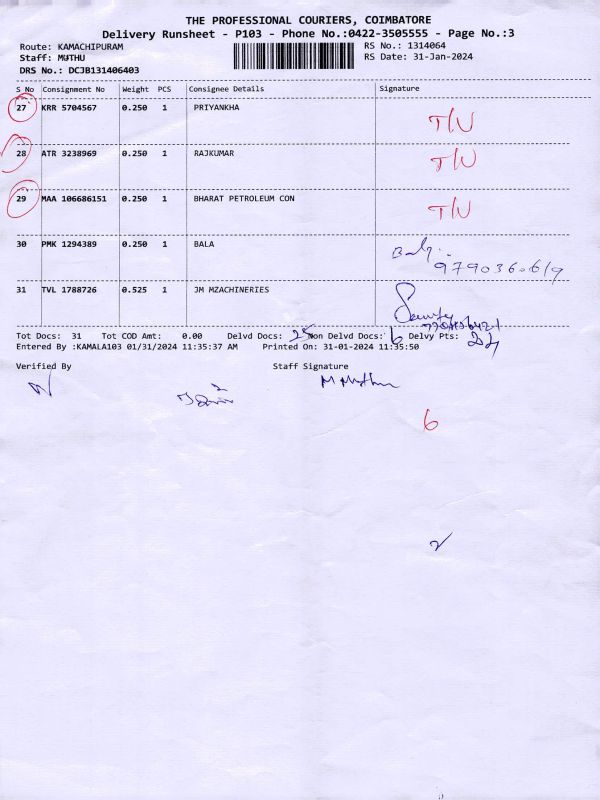 THE PROFESSIONAL COURIERS, COIMBATORE
Delivery Runsheet - P103 - Phone No.:0422-3505555 - Page No.:3
Route: KAMACHIPURAM RS No.: 1314064
Staff: MUTHU RS Date: 31-Jan-2024
DRS No.: DCJB131406403
S No Consignment No Weight PCS Consignee Details Signature
27 KRR 5704567 0.250 1 PRIYANKHA T/U
28 ATR 3238969 0.250 1 RAJKUMAR T/U
29 MAA 106686151 0.250 1 BHARAT PETROLEUM CON T/U
30 PMK 1294389 0.250 1 BALA
31 TVL 1788726 0.525 1 JM MZACHINERIES
Tot Docs: 31 Tot COD Amt: 0.00 Delvd Docs: 25 Non Delvd Docs: 6 Delvy Pts:
Entered By :KAMALA103 01/31/2024 11:35:37 AM Printed On: 31-01-2024 11:35:50
Verified By Staff Signature
M Muthu
6